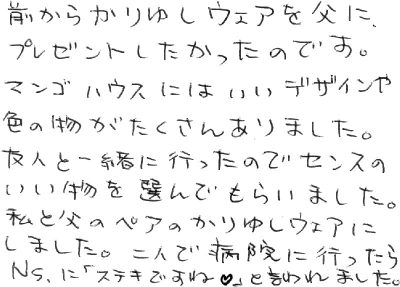 前からかりゆしウェアを父に、
プレゼントしたかったのです。
マンゴハウスにはいいデザインや
色の物がたくさんありました。
友人と一緒に行ったのでセンスの
いい物を選んでもらいました。
私と父のペアのかりゆしウェアに
しました。二人で病院に行ったら
Ns.に「ステキですね♥」と言われました。